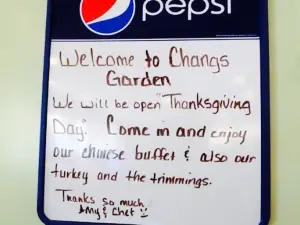 pepsi
Welcome to Changs
Garden
We will be open "Thanksgiving
Day". Come in and enjoy
our chinese buffet & also our
turkey and the trimmings.
Thanks so much
Amy & Chet